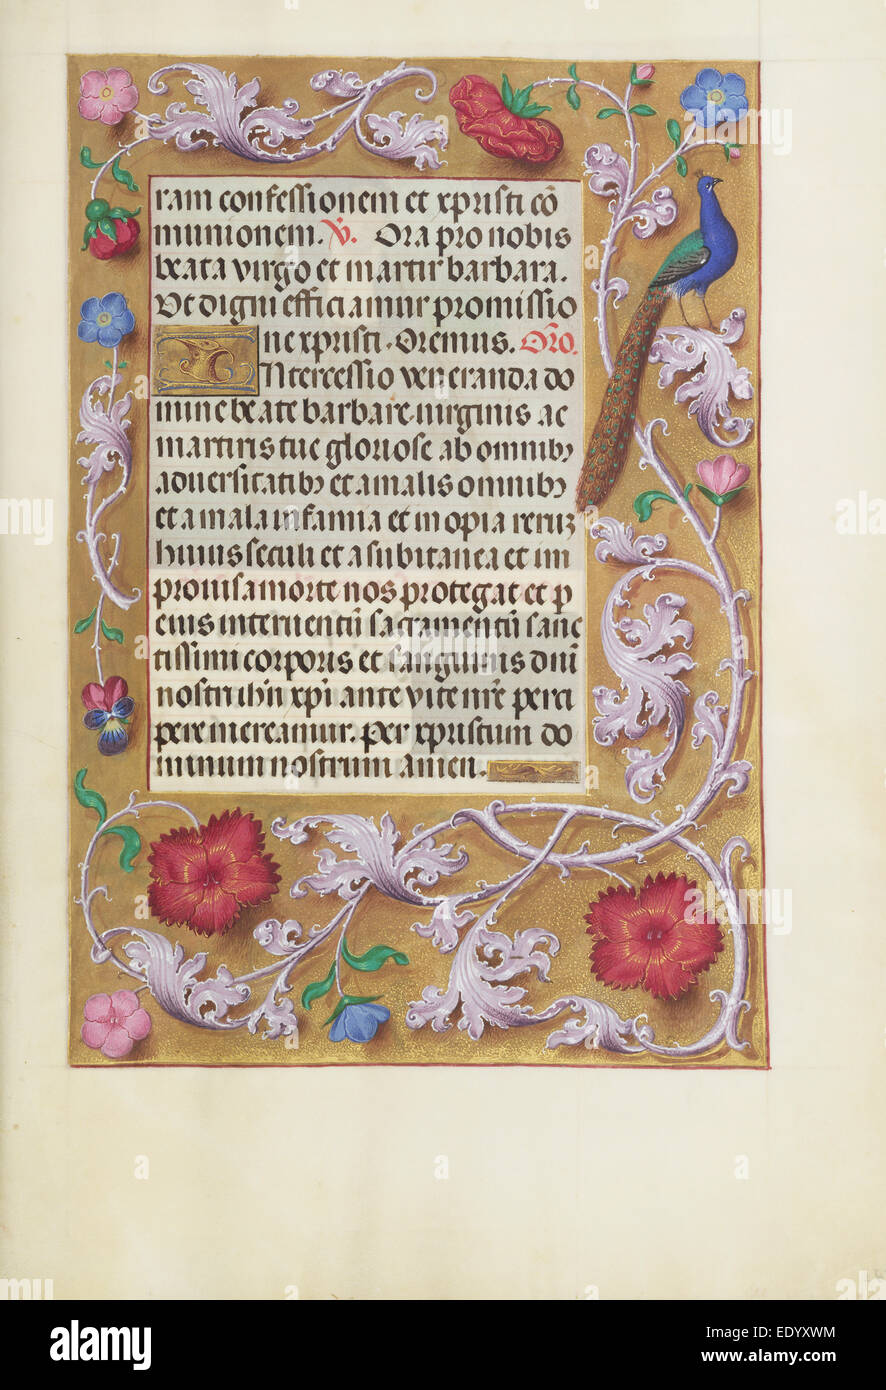 ram confessionem et xpristi cō
munionem. V. Ora pro nobis
beata virgo et martir barbara.
Ut digni efficiamur promissio
ne xpristi. Oremus. Oro.
Intercessio veneranda do
mine beate barbare. uirginis ac
martiris tue gloriose ab omnibꝫ
aduersitatibꝫ et a malis omnibꝫ
et a mala infamia et inopia reruꝫ
huius seculi et a subitanea et im
prouisa morte nos protegat et ꝑ
eius interuentū sacramentū sanc
tissimi corporis et sanguinis dn̄i
nostri ih̄u xp̄i ante vite nr̄e perci
pere mereamur. Per xpristum do
minum nostrum amen.
alamy
Image ID: EDYXWM
www.alamy.com